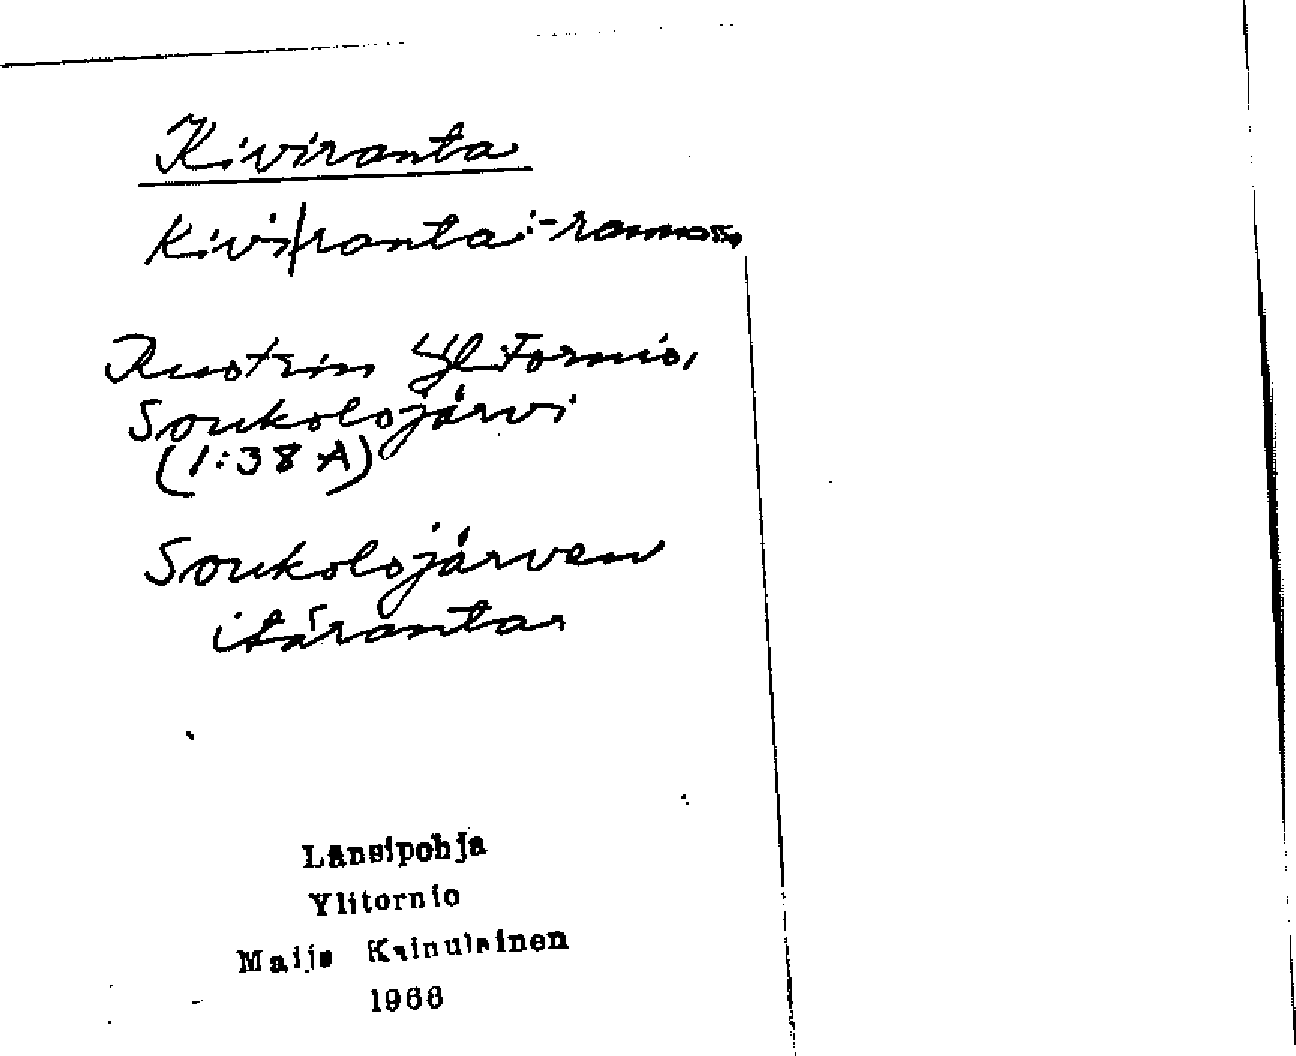 Kiviranta
Kivi|ranta: -rannassa
Ruotsin Yli Tornio,
Soukolojärvi
(1:38 A)
Soukolojärven
itäranta
Länsipohja
Ylitornio
Maija Kainulainen
1966